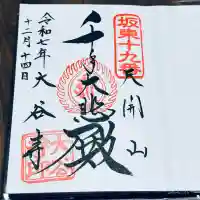 坂東十九番
天開山
千手大悲殿
大谷寺
令和七年
十二月十四日